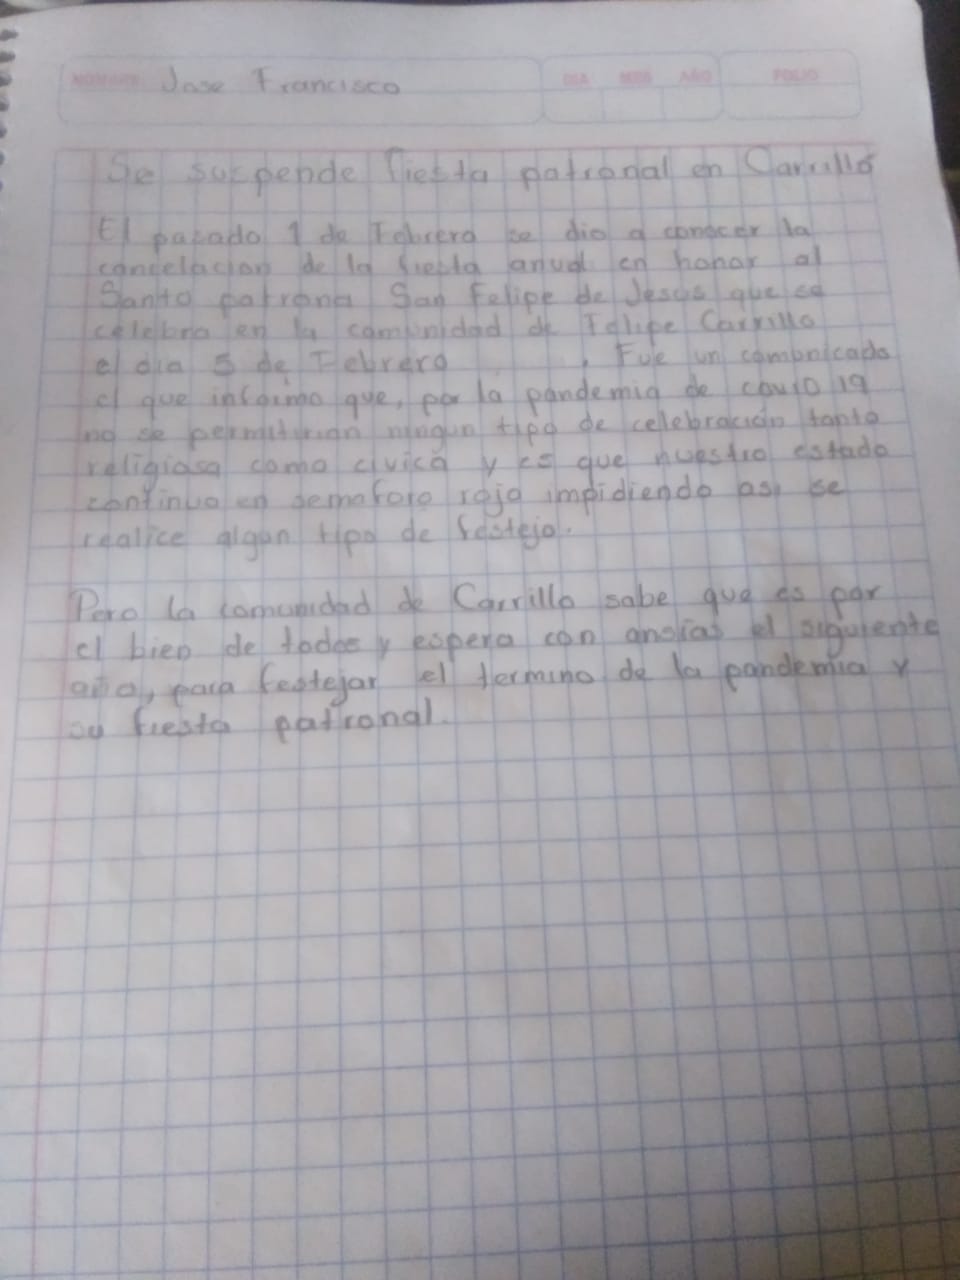 NOMBRE Jose Francisco
DIA MES AÑO FOLIO
Se suspende fiesta patronal en Carrillo
El pasado 1 de Febrero se dio a conocer la
cancelacion de la fiesta anual en honor al
Santo patrono San Felipe de Jesus que se
celebra en la comunidad de Felipe Carrillo
el dia 5 de Febrero , Fue un comunicado
el que informo que, por la pandemia de covid 19
no se permitirian ningun tipo de celebración tanto
religiosa como civica y es que nuestro estado
continua en semaforo rojo impidiendo asi se
realice algun tipo de festejo.
Pero la comunidad de Carrillo sabe que es por
el bien de todos y espera con ansias el siguiente
año, para festejar el termino de la pandemia y
su fiesta patronal.